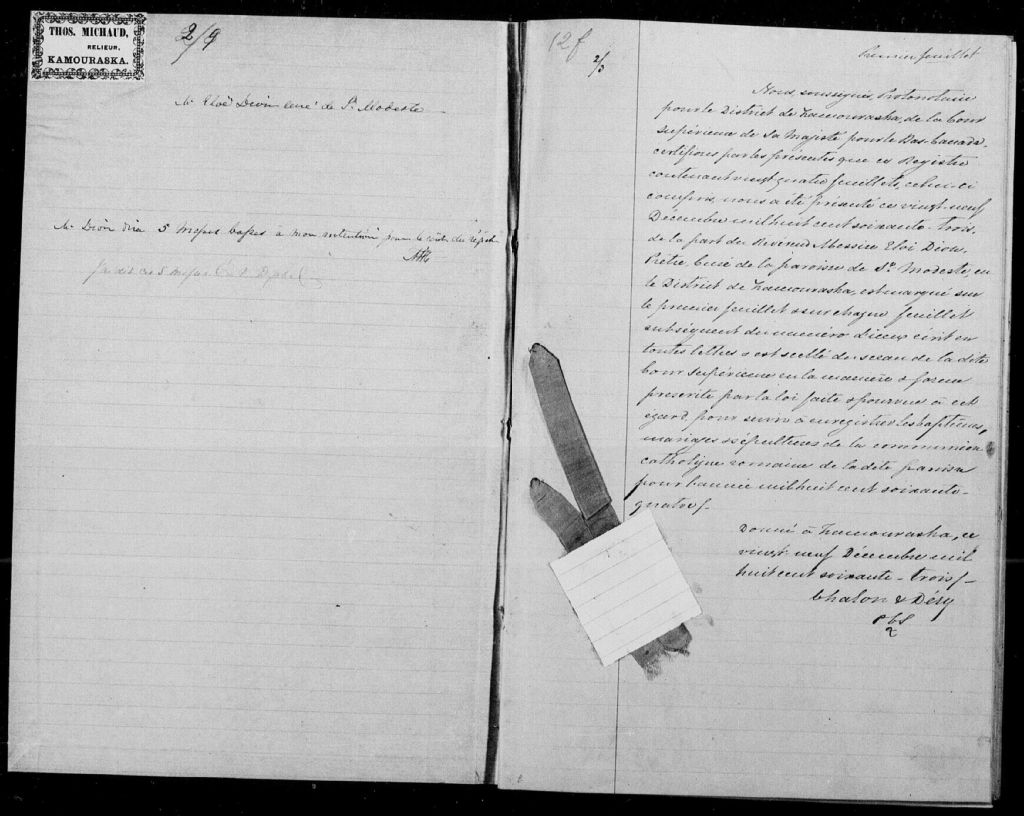 THOS. MICHAUD,
RELIEUR,
KAMOURASKA.
2/9
Mr Eloi Dion curé de St Modeste
Mr Dion dira 5 messes basses à mon intention pour le coût du régistre
J'ai dit ces 5 messes
12 f
2/3
Premier feuillet
Nous, soussigné, Protonotaire
pour le District de Kamouraska, de la Cour
Supérieure de Sa Majesté pour le Bas-Canada,
certifions par les présentes que ce Registre
contenant vingt quatre feuillets, celui-ci
compris, nous a été présenté ce vingt-neuf
Décembre mil huit cent soixante-trois,
de la part du Révérend Messire Eloi Dion,
Prêtre, Curé de la paroisse de St Modeste, en
le District de Kamouraska, est marqué sur
le premier feuillet & sur chaque feuillet
subséquent du numéro d'iceux écrit en
toutes lettres & est scellé du sceau de la dite
Cour Supérieure en la manière & forme
prescrite par la loi faite & pourvue à cet
égard pour servir à enregistrer les baptêmes,
mariages & sépultures de la communion
catholique romaine de la dite paroisse
pour l'année mil huit cent soixante-
quatre/-
Donné à Kamouraska, ce
vingt neuf Décembre mil
huit cent soixante-trois/-
Chalou & Désy